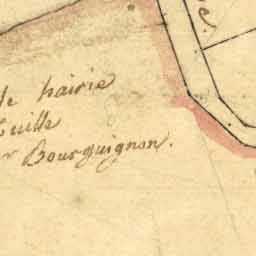 de hairie
tuille
r Bourguignon.